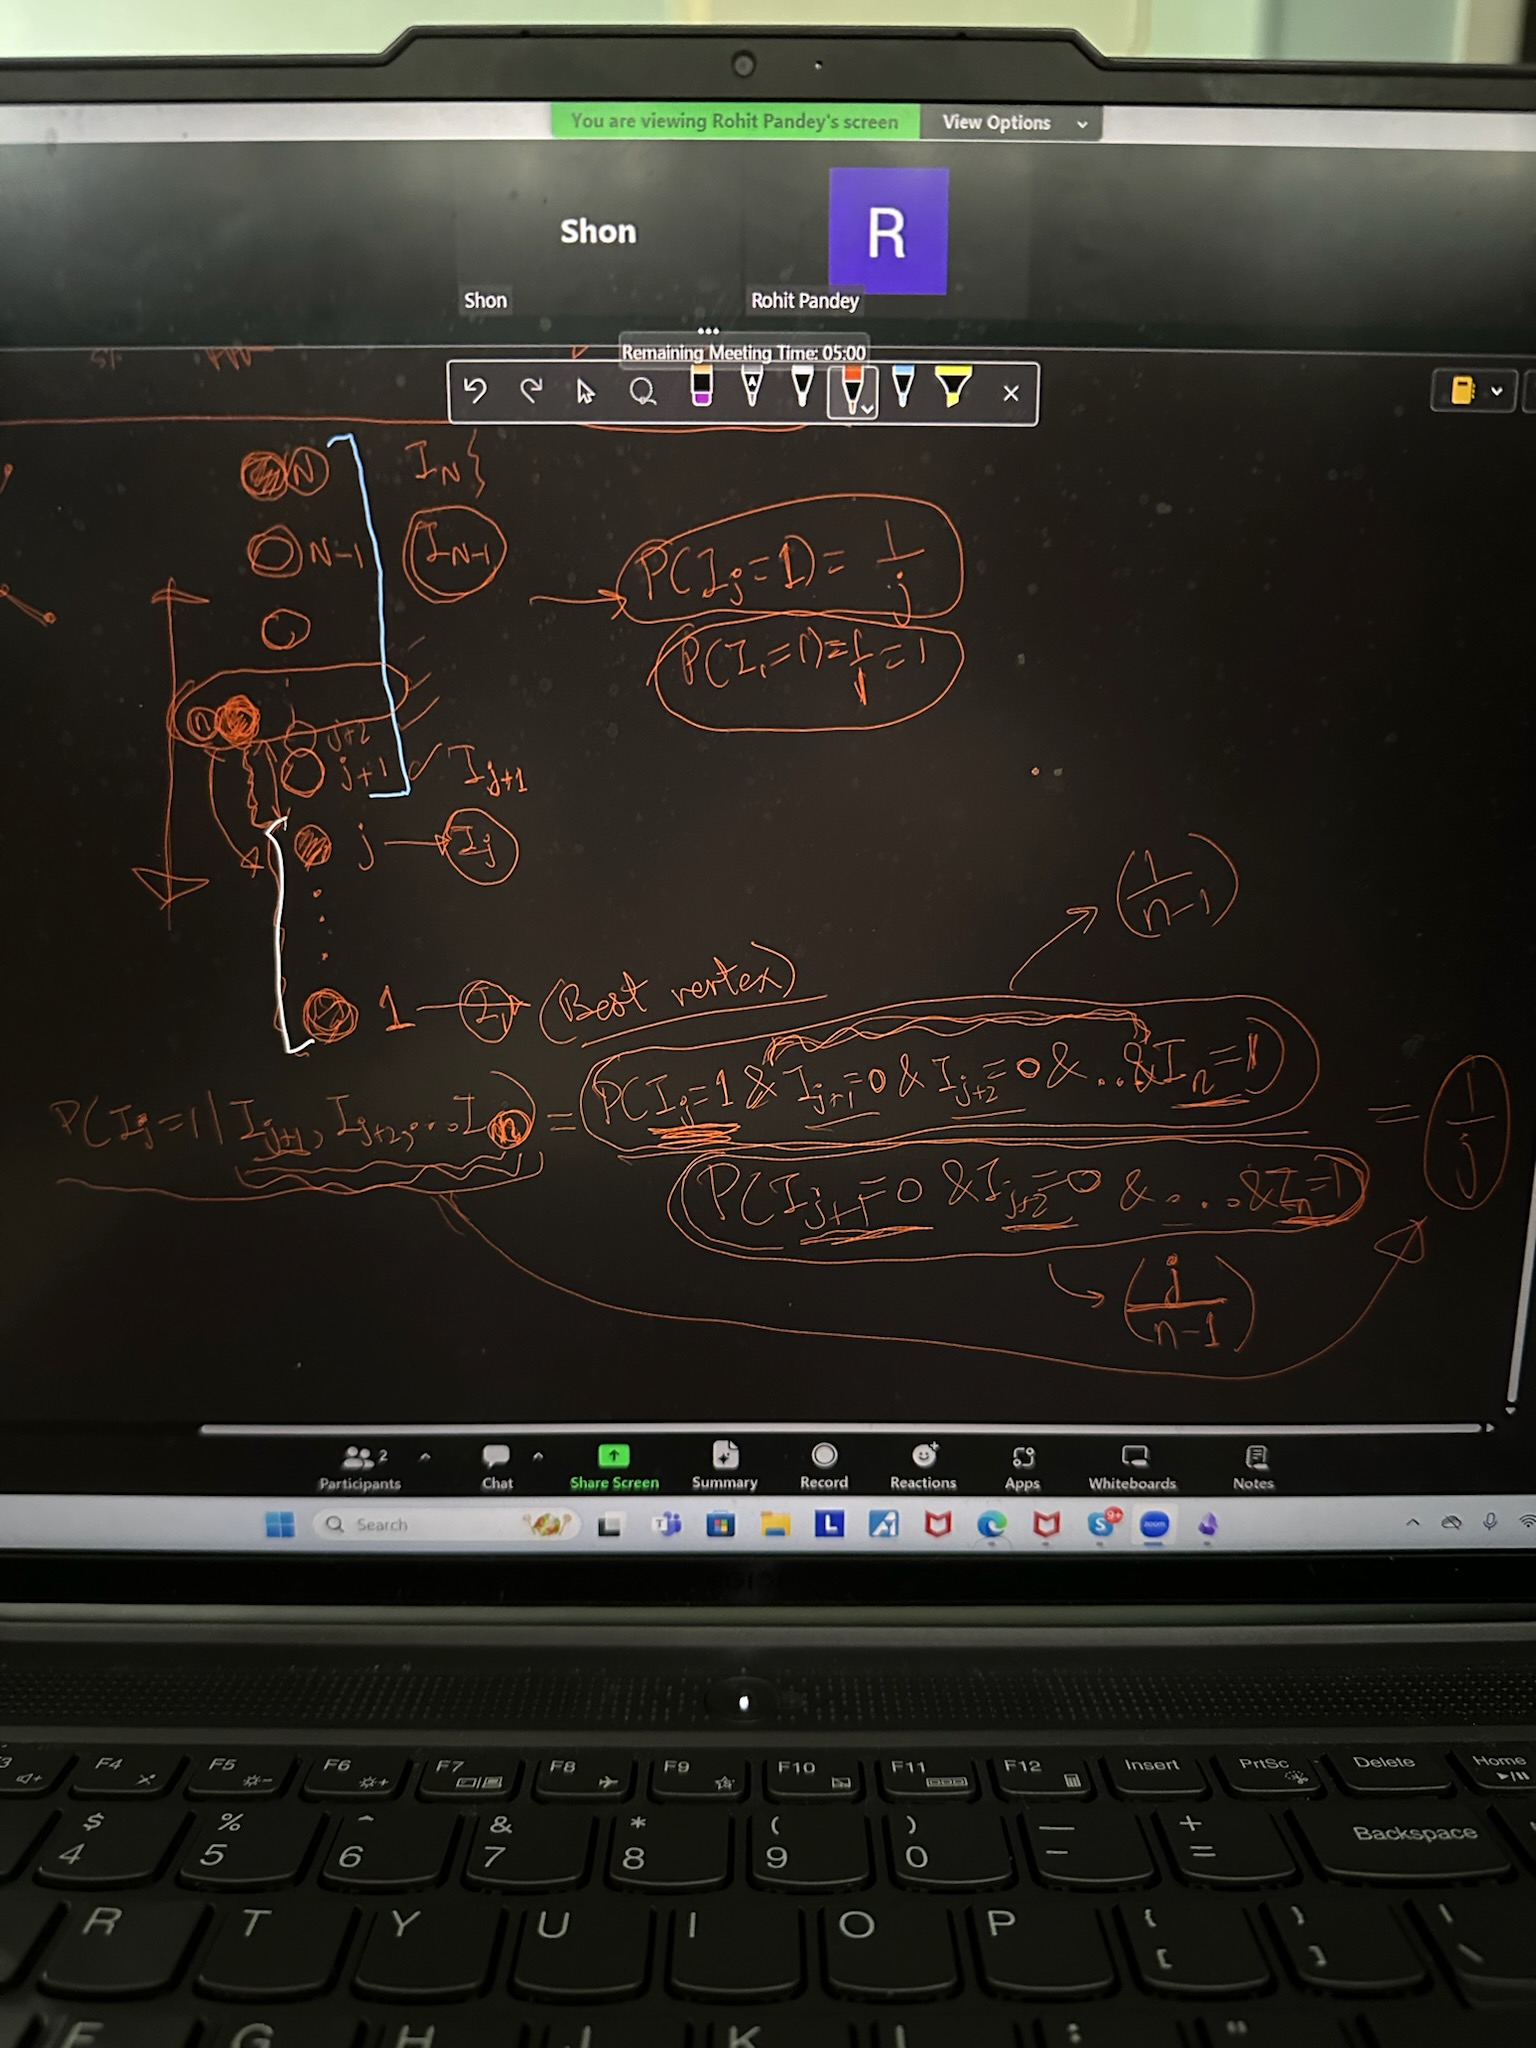 You are viewing Rohit Pandey's screen View Options
Shon
R
Shon Rohit Pandey
Remaining Meeting Time: 05:00
A
N I_N}
N-1 I_{N-1}
P(I_j=1)= 1/j
P(I_1=1)=1/1=1
n
j+2
j+1 ✓ I_{j+1}
j → I_j
(1/(n-1))
1 → I_1 (Best vertex)
P(I_j=1 | I_{j+1}, I_{j+2}, ... I_n) = P(I_j=1 & I_{j+1}=0 & I_{j+2}=0 & ... & I_n=1) = 1/j
P(I_{j+1}=0 & I_{j+2}=0 & ... & I_n=1)
(j/(n-1))
2
Participants Chat Share Screen Summary Record Reactions Apps Whiteboards Notes
Search T L S 9+ zoom
F4 F5 F6 F7 F8 F9 F10 F11 F12 Insert PrtSc Delete Home
$ % ^ & * ( ) — +
4 5 6 7 8 9 0 - = Backspace
R T Y U I O P { [ } ] \
F G H J K L : "